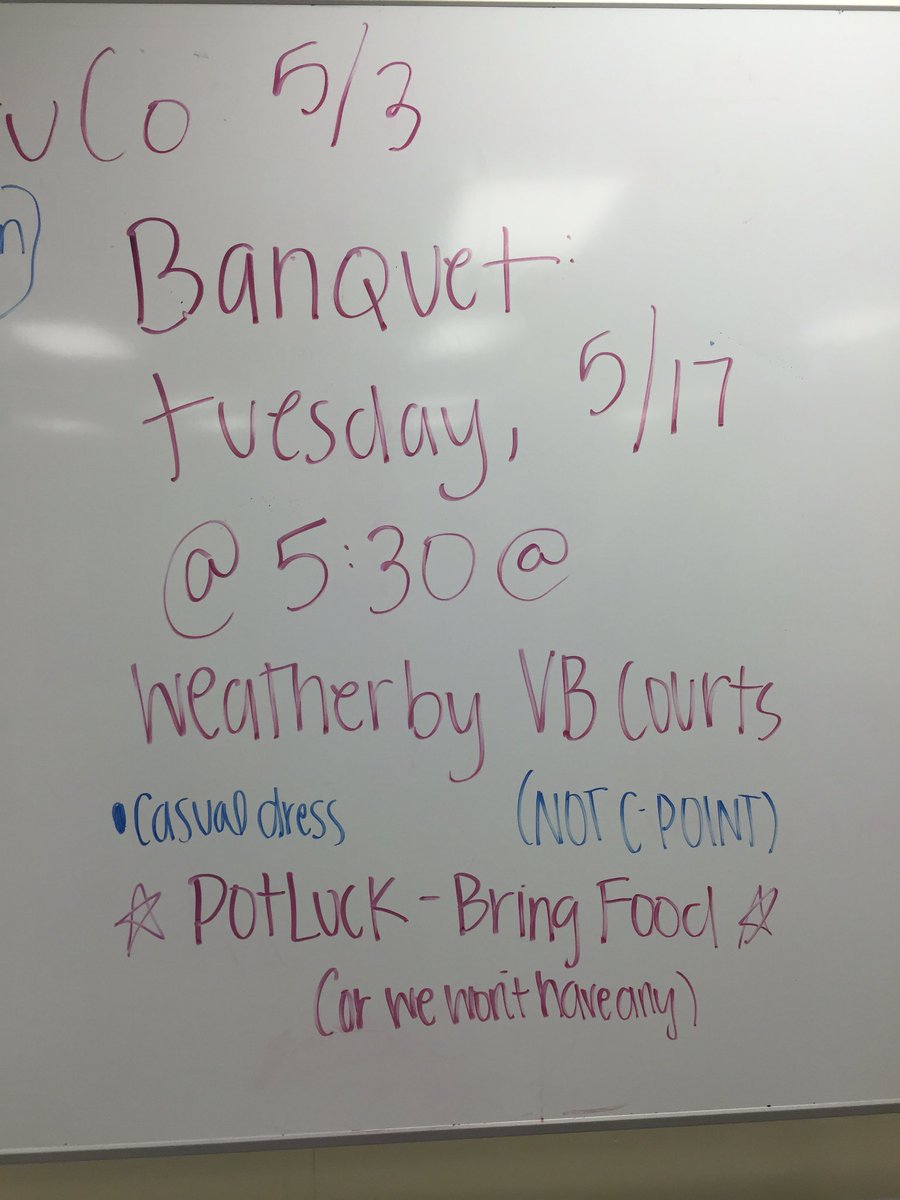 uCo 5/3
n)
Banquet:
tuesday, 5/17
@ 5:30 @
Weatherby VB Courts
•Casual dress (NOT C-POINT)
☆ POtLUCK - Bring Food ☆
(or we won't have any)